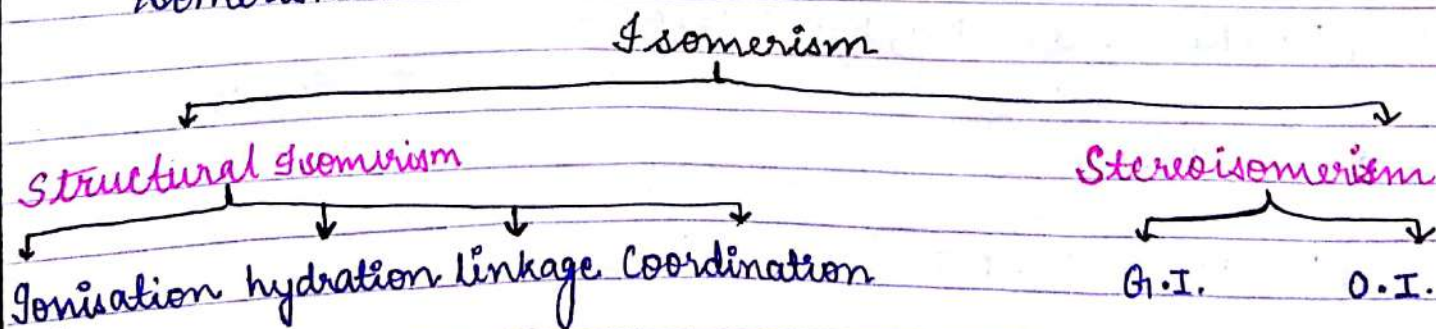 Isomerism
Structural Isomerism Stereoisomerism
Ionisation hydration linkage Coordination G.I. O.I.